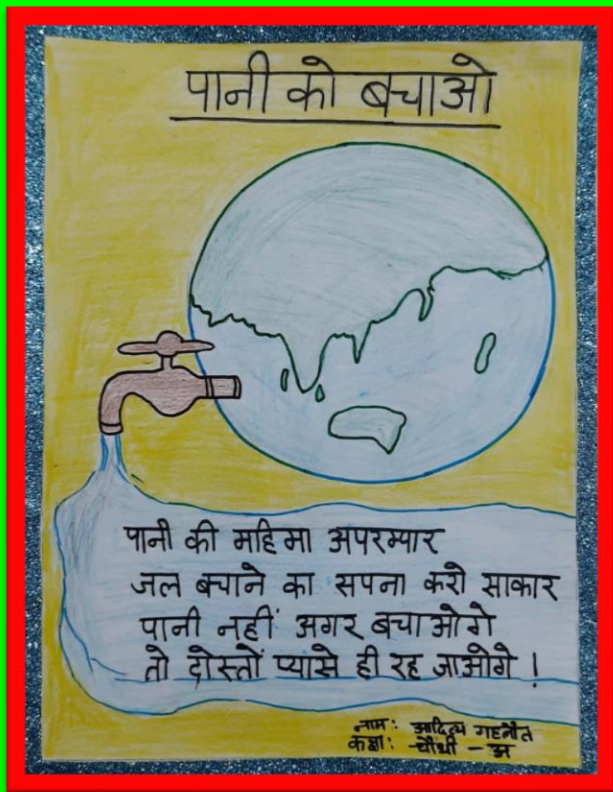 पानी को बचाओ
पानी की महिमा अपरम्पार
जल बचाने का सपना करो साकार
पानी नहीं अगर बचाओगे
तो दोस्तों प्यासे ही रह जाओगे !
नाम : आदित्य गहलौत
कक्षा : चौथी - अ